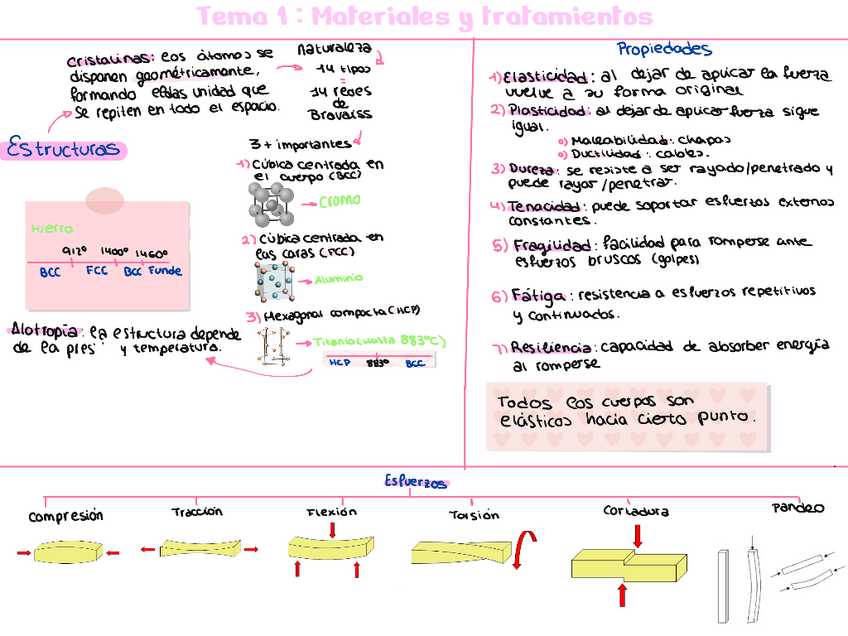 Tema 1: Materiales y tratamientos
cristalinas: los átomos se
disponen geométricamente,
formando eldas unidad que
se repiten en todo el espacio.
naturaleza
14 tipos
14 redes
de
Bravaiss
3 + importantes
Estructuras
1) Cúbica centrada en
el cuerpo (BCC)
Cromo
2) Cúbica centrada en
las caras (FCC)
Aluminio
3) Hexagonal compacta (HCP)
Titanio (hasta 883ºC)
HCP 883º BCC
Hierro
912º 1400º 1460º
BCC FCC BCC Funde
Alotropía: la estructura depende
de la pres y temperatura.
Propiedades
1) Elasticidad: al dejar de aplicar la fuerza
vuelve a su forma original
2) Plasticidad: al dejar de aplicar fuerza sigue
igual.
o) Maleabilidad: chapas
o) Ductilidad: cables.
3) Dureza: se resiste a ser rayado/penetrado y
puede rayar/penetrar.
4) Tenacidad: puede soportar esfuerzos externos
constantes.
5) Fragilidad: facilidad para romperse ante
esfuerzos bruscos (golpes)
6) Fátiga: resistencia a esfuerzos repetitivos
y continuados.
7) Resiliencia: capacidad de absorber energía
al romperse
Todos los cuerpos son
elásticos hacia cierto punto.
Esfuerzos
Compresión
Tracción
Flexión
Torsión
Cortadura
Pandeo